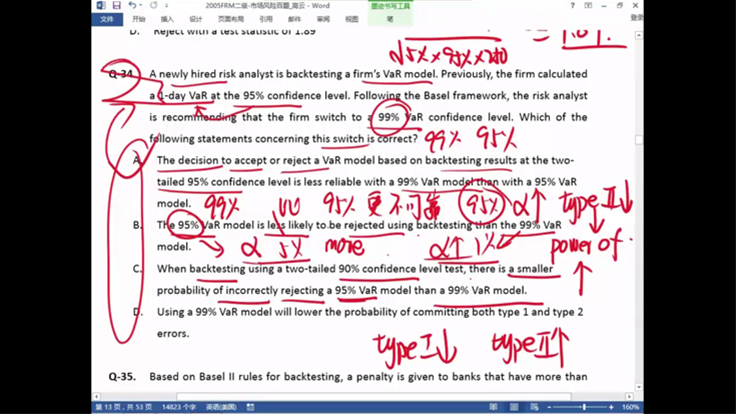 2005FRM二级-市场风险百题_高云 - Word
墨迹书写工具
文件 开始 插入 设计 页面布局 引用 邮件 审阅 视图 笔
D. Reject with a test statistic of 1.89
√5%×95%×250
Q-34. A newly hired risk analyst is backtesting a firm's VaR model. Previously, the firm calculated
a 1-day VaR at the 95% confidence level. Following the Basel framework, the risk analyst
is recommending that the firm switch to a 99% VaR confidence level. Which of the
following statements concerning this switch is correct? 99% 95%
A. The decision to accept or reject a VaR model based on backtesting results at the two-
tailed 95% confidence level is less reliable with a 99% VaR model than with a 95% VaR
model. 99% VU 95% 更不可靠 95% α↑ type II↓
B. The 95% VaR model is less likely to be rejected using backtesting than the 99% VaR
model. α 5% more α↑ 1% power of
C. When backtesting using a two-tailed 90% confidence level test, there is a smaller
probability of incorrectly rejecting a 95% VaR model than a 99% VaR model.
D. Using a 99% VaR model will lower the probability of committing both type 1 and type 2
errors.
type I↓ type II↑
Q-35. Based on Basel II rules for backtesting, a penalty is given to banks that have more than
第 13 页，共 53 页 14823 个字 英语(美国) 160%